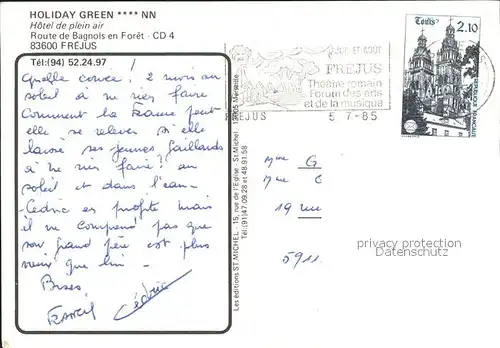 HOLIDAY GREEN **** NN
Hôtel de plein air
Route de Bagnols en Forêt - CD 4
83600 FRÉJUS
Tél:(94) 52.24.97
Quelle corvée ! 2 mois au
soleil à ne rien faire
Comment la France peut
elle se relever si elle
laisse ses jeunes gaillards
à ne rien faire! au
soleil et dans l'eau -
Cédric en profite mais
il ne comprend pas que
son grand père est plus
vieux que lui -
Bises
Cédric
Les éditions ST. MICHEL - 15, rue de l'Eglise - St. Michel
Tél:(91)47.09.28 et 48.91.58
JUIL ET AOUT
FREJUS
Théâtre romain
Forum des arts
et de la musique
FREJUS 5 7-85
Tours
2.10
Mme G
Mme C
19 rue
5911
privacy protection
Datenschutz